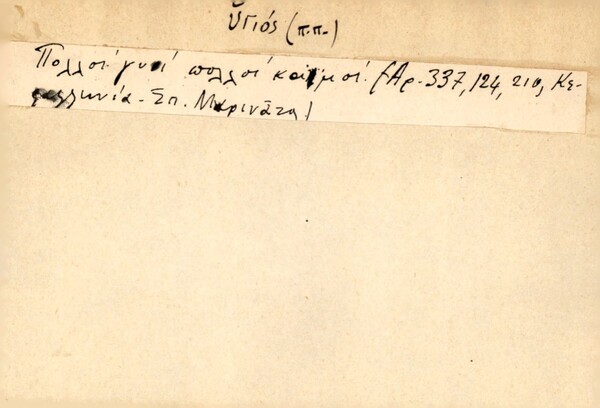 ὑγιός (π.π.)
Πολλοί γυιοί πολλοί καϊμοί (Αρ. 337, 124, 210, Κε-
φαλλωνία - Σπ. Μαρινᾶτα)